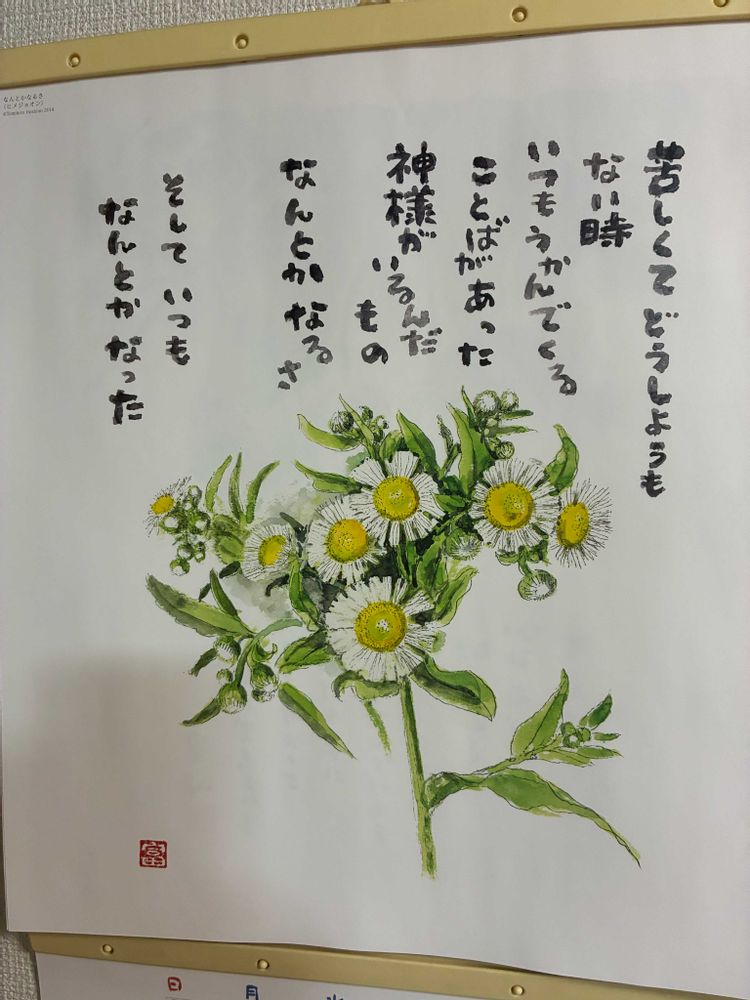 なんとかなるさ
(ヒメジョオン)
©Tomihiro Hoshino 2014
苦しくて どうしようも
ない時
いつもうかんでくる
ことばがあった
神様がいるんだ
もの
なんとかなるさ
そして いつも
なんとか なった
富
日 月